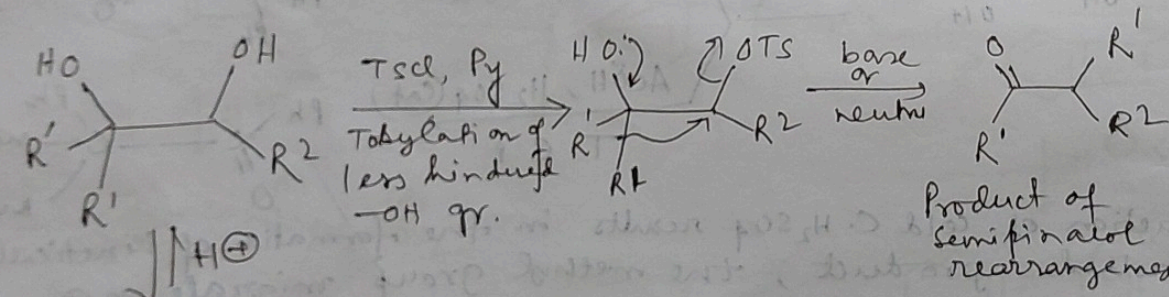 HO OH
R' R²
R'
TsCl, Py
Tosylation of
less hindered
-OH gr.
HO: OTS
R' R²
R1
base
or
neutral
O R'
R' R²
Product of
semipinacol
rearrangemen
H⊕